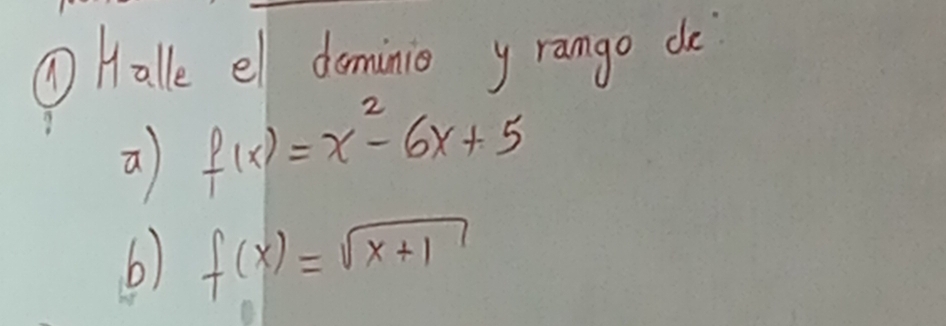 ① Halle el dominio y rango de:
a) f(x) = x² - 6x + 5
b) f(x) = √(x + 1)